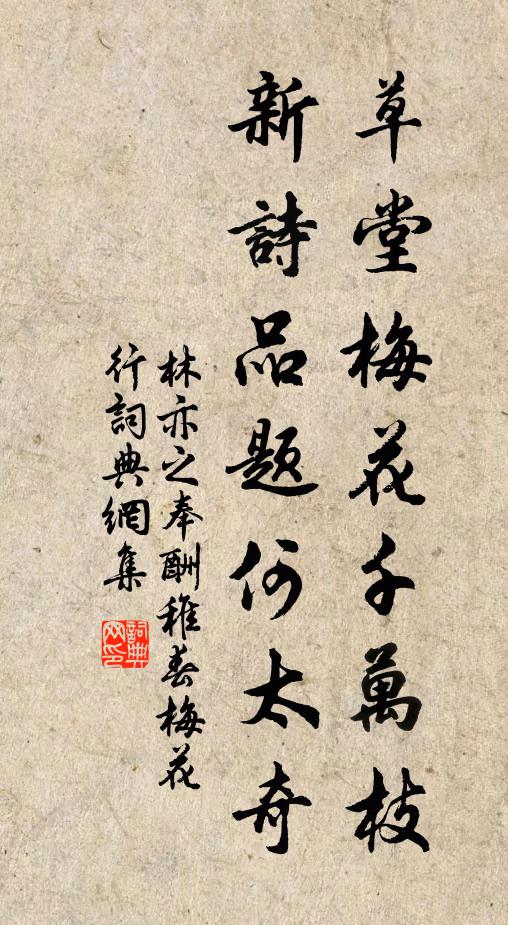 草堂梅花千萬枝
新詩品題何太奇
林亦之奉酬稚春梅花
行詞典網集
詞典網印